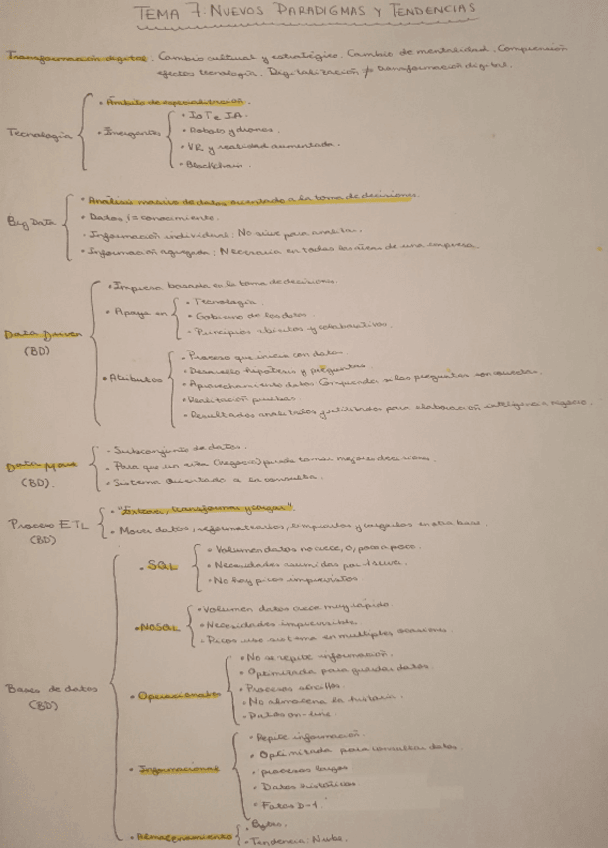 TEMA 7. NUEVOS PARADIGMAS Y TENDENCIAS
Transformación digital. Cambio cultural y estratégico. Cambio de mentalidad. Comprensión
efectos tecnología. Digitalización ≠ transformación digital.
Tecnología
• Ámbito de especialización.
• Emergentes
• IoT e IA.
• Robots y drones.
• VR y realidad aumentada.
• Blockchain.
Big Data
• Análisis masivo de datos orientado a la toma de decisiones.
• Datos != conocimiento.
• Información individual: No sirve para analizar.
• Información agregada: Necesaria en todas las áreas de una empresa.
Data Driven
(BD)
• Empresa basada en la toma de decisiones.
• Apoya en
• Tecnología.
• Gobierno de los datos.
• Principios abiertos y colaborativos.
• Atributos
• Proceso que inicia con datos
• Desarrollo hipótesis y preguntas
• Aprovechamiento datos. Comprender si las preguntas son correctas.
• Realización pruebas.
• Resultados analizados y utilizados para elaboración inteligencia negocio.
Data Mart
(BD).
• Subconjunto de datos.
• Para que un área (negocio) pueda tomar mejores decisiones.
• Sistema orientado a la consulta.
Proceso ETL
(BD)
• "Extraer, transformar y cargar".
• Mover datos, reformatearlos, limpiarlos y cargarlos en otra base.
Bases de datos
(BD)
• SQL
• Volumen datos no crece, o, poco a poco.
• Necesidades asumidas por 1 server.
• No hay picos imprevistos.
• NoSQL
• Volumen datos crece muy rápido.
• Necesidades imprevisible
• Picos uso sistema en múltiples ocasiones
• Operacionales
• No se repite información.
• Optimizada para guardar datos.
• Procesos sencillos.
• No almacena la historia.
• Datos on-line.
• Informacional
• Repite información.
• Optimizada para consultar datos.
• procesos largos
• Datos históricos
• Fotos D-1.
• Almacenamiento
• Bytes.
• Tendencia: Nube.